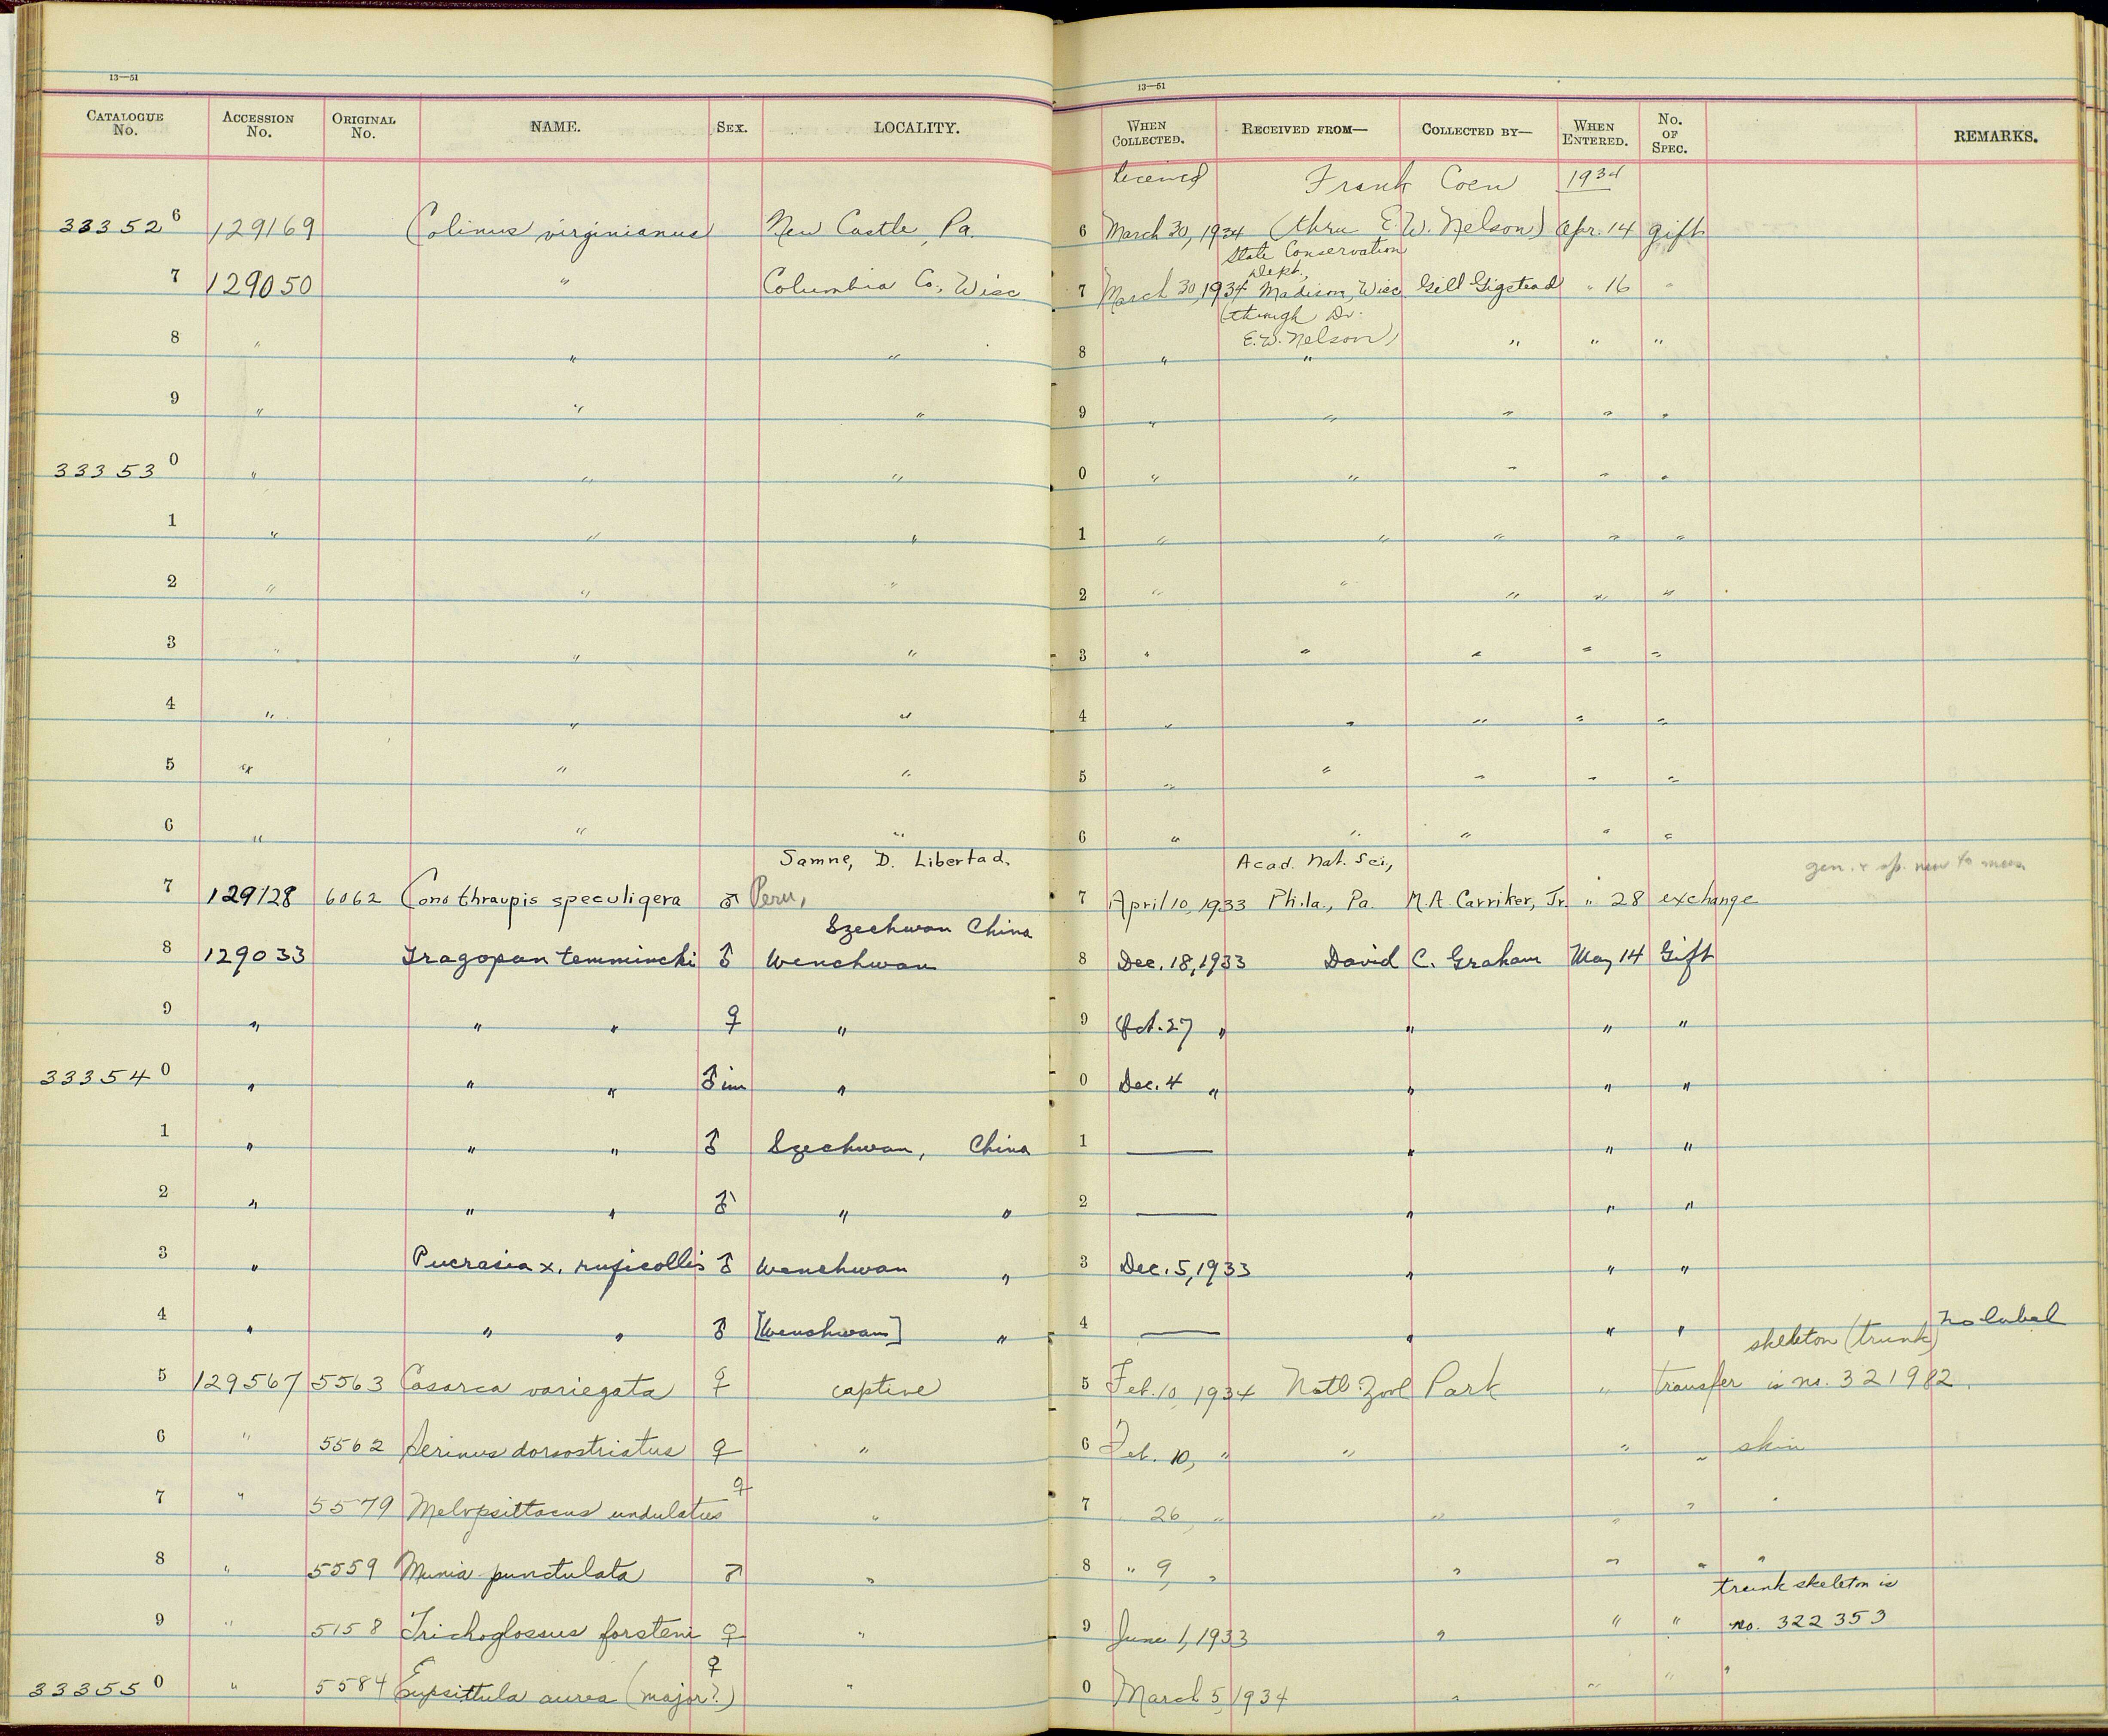 13—51 13—51
CATALOGUE No. ACCESSION No. ORIGINAL No. NAME. SEX. LOCALITY. WHEN COLLECTED. RECEIVED FROM— COLLECTED BY— WHEN ENTERED. No. OF SPEC. REMARKS.
Received Frank Coen 1934
33352 6 129169 Colinus virginianus New Castle, Pa. 6 March 30, 1934 (thru E. W. Nelson) Apr. 14 gift
State Conservation
Dept.,
7 129050 " Columbia Co., Wisc 7 March 30, 1934 Madison, Wisc. Gill Gigstead " 16 "
(through Dr.
E. W. Nelson)
8 " " " 8 " " " " "
9 " " " 9 " " " " "
33353 0 " " " 0 " " " " "
1 " " " 1 " " " " "
2 " " " 2 " " " " "
3 " " " 3 " " " " "
4 " " " 4 " " " " "
5 " " " 5 " " " " "
6 " " " 6 " " " " "
Samne, D. Libertad, Acad. Nat. Sci., gen. & sp. new to mus.
7 129128 6062 Conothraupis speculigera ♂ Peru, 7 April 10, 1933 Phila., Pa. M. A. Carriker, Jr. " 28 exchange
Szechwan China
8 129033 Tragopan temmincki ♂ Wenchwan 8 Dec. 18, 1933 David C. Graham May 14 Gift
9 " " " ♀ " 9 Oct. 27 " " " "
33354 0 " " " ♂ im " 0 Dec. 4 " " " "
1 " " " ♂ Szechwan, China 1 — " " "
2 " " " ♂ " " 2 — " " "
3 " Pucrasia x. ruficollis ♂ Wenchwan " 3 Dec. 5, 1933 " " "
4 " " " ♂ [Wenchwan] " 4 — " " " No label
skeleton (trunk)
5 129567 5563 Casarca variegata ♀ captive 5 Feb. 10, 1934 Natl. Zool Park " transfer is no. 321982.
6 " 5562 Serinus dorsostriatus ♀ " 6 Feb. 10, " " " " skin
7 " 5579 Melopsittacus undulatus ♀ " 7 26, " " " " "
8 " 5559 Munia punctulata ♂ " 8 " 9, " " " " "
trunk skeleton is
9 " 5158 Trichoglossus forsteni ♀ " 9 June 1, 1933 " " " no. 322353
33355 0 " 5584 Eupsittula aurea (major?) ♀ " 0 March 5, 1934 " " " "